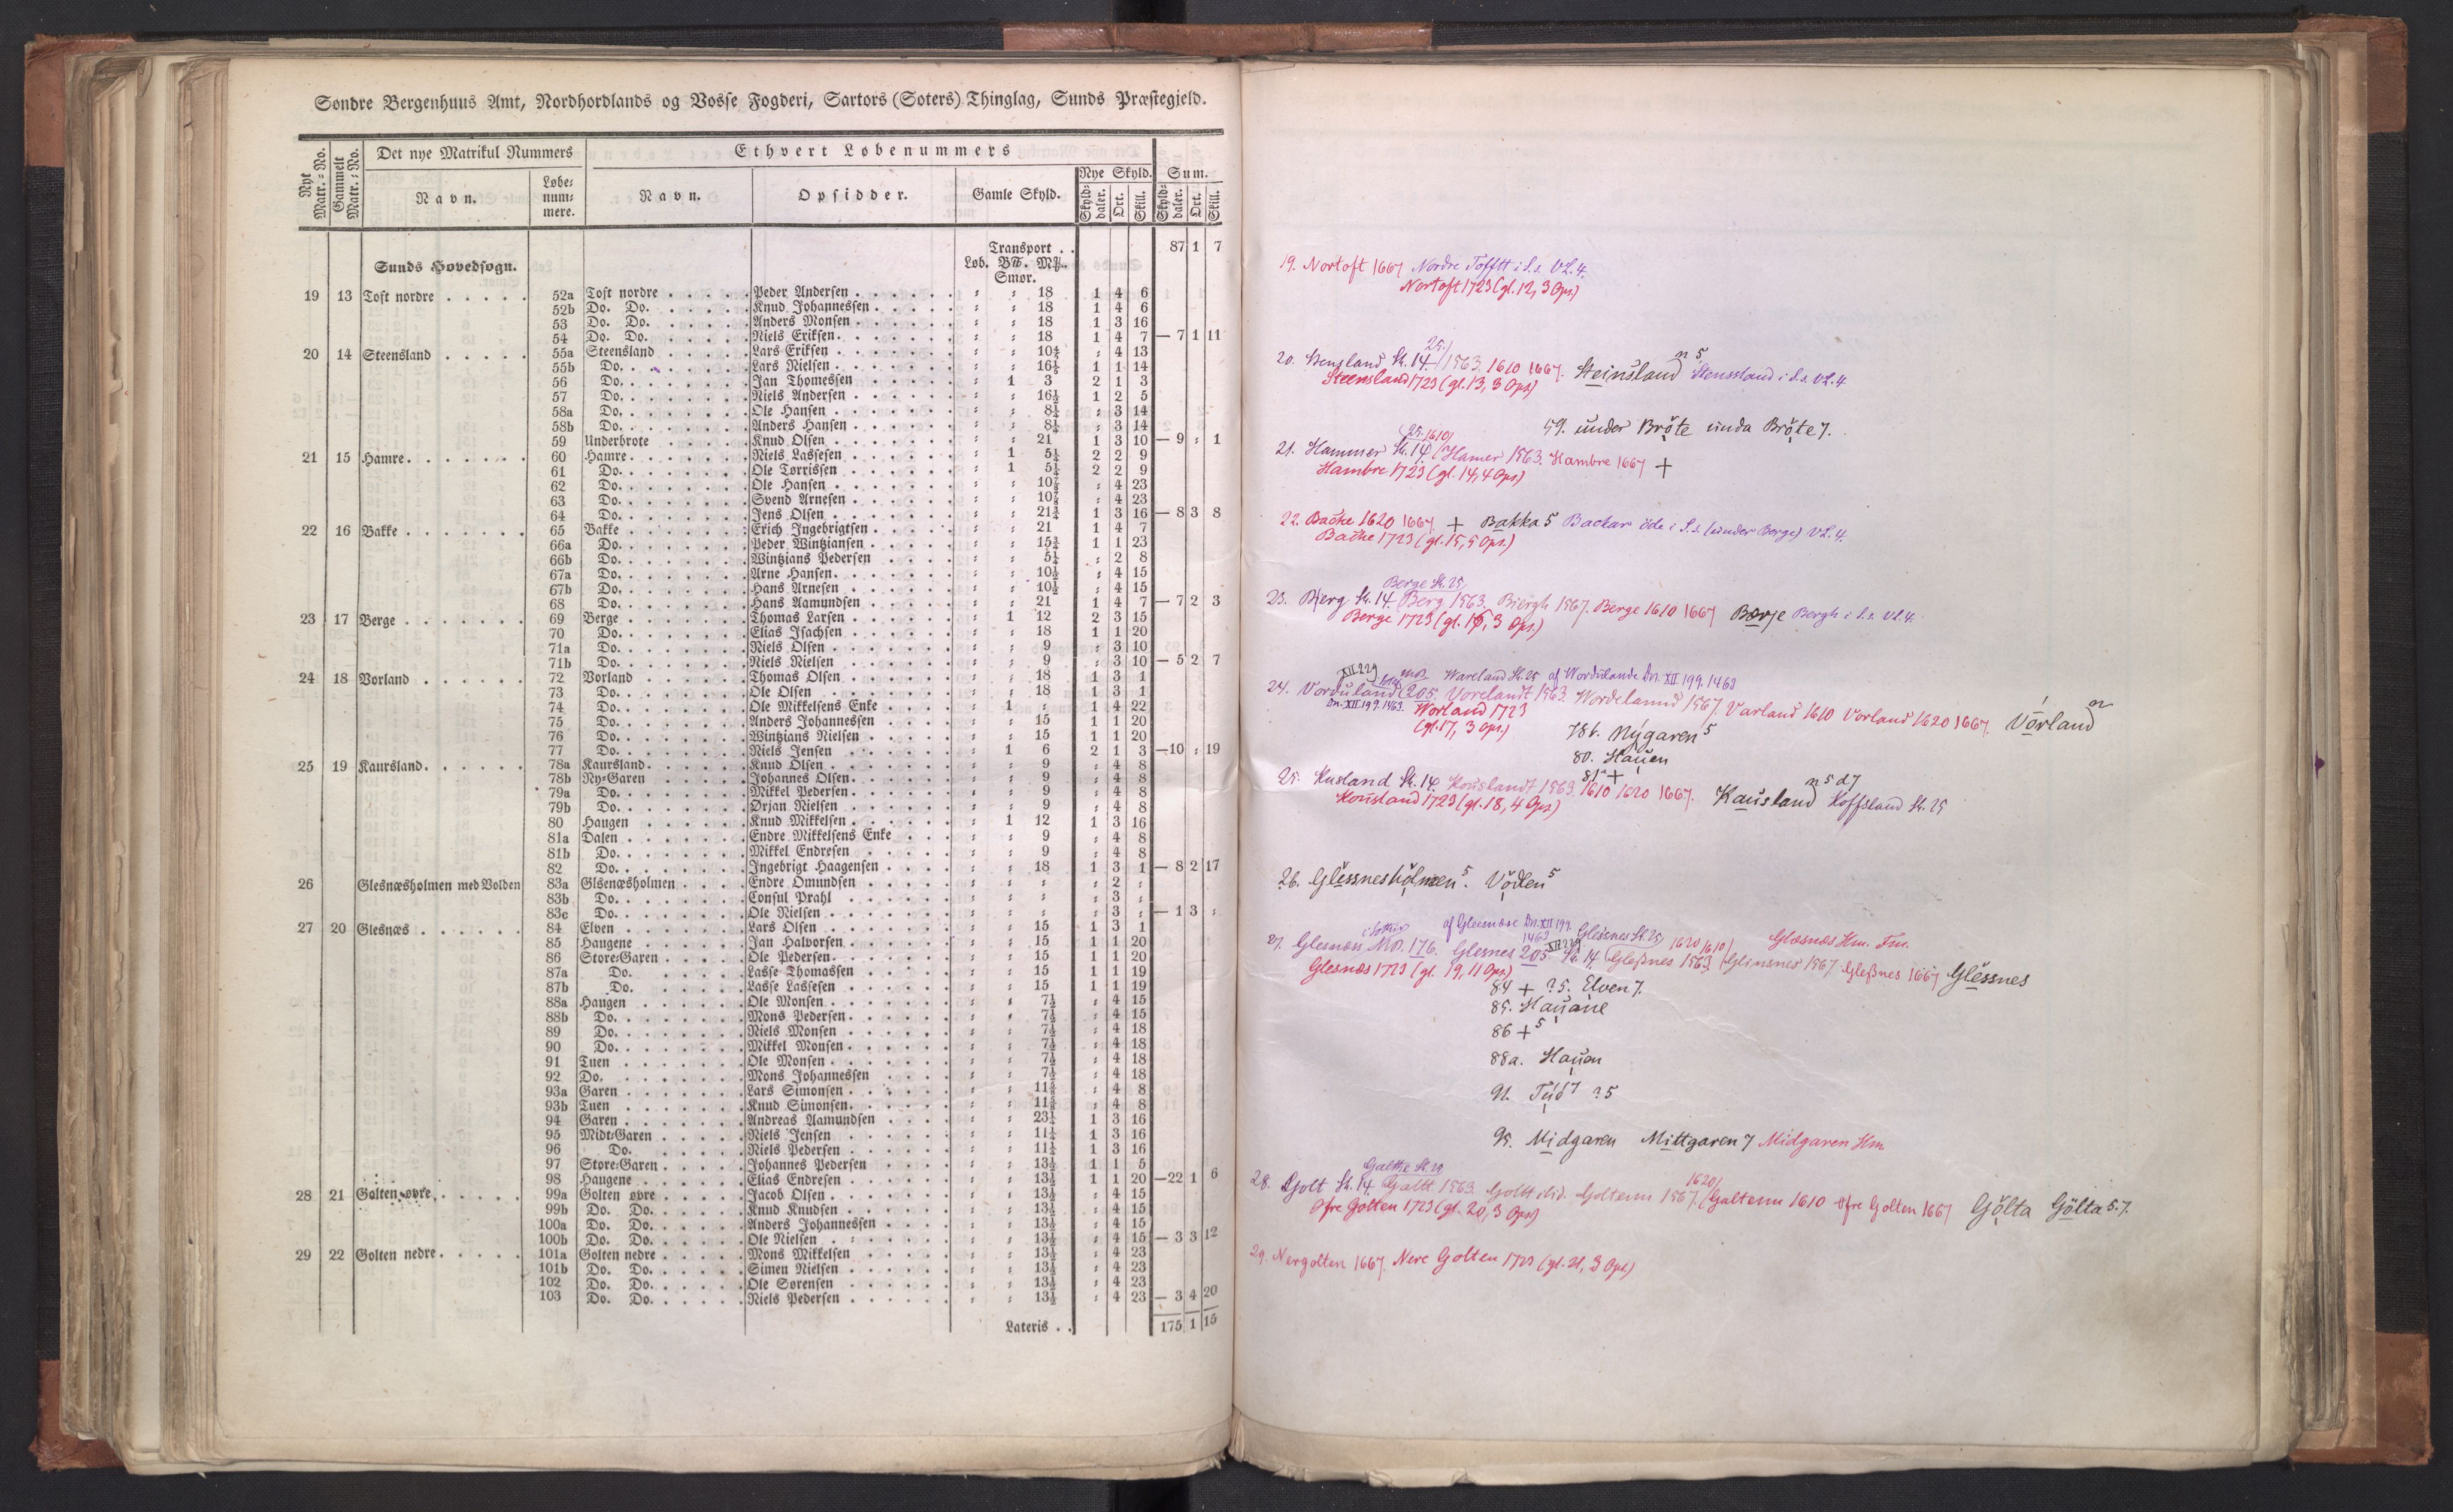 Søndre Bergenhuus Amt, Nordhordlands og Vosse Fogderi, Sartors (Soters) Thinglag, Sunds Præstegjeld.
Nyt Matr.=No. Gammelt Matr.=No. Det nye Matrikul Nummers Ethvert Løbenummers
Navn. Løbe=num=mere. Navn. Opsidder. Gamle Skyld. Nye Skyld. Sum.
Skyld=daler. Ort. Skill. Skyld=daler. Ort. Skill.
Transport . . 87 1 7
Sunds Hovedsogn. Løb. B℔. Mk.
Smør.
19 13 Toft nordre 52a Toft nordre Peder Andersen = = 18 1 4 6
52b Do. Do. Knud Johannessen = = 18 1 4 6
53 Do. Do. Anders Monsen = = 18 1 3 16
54 Do. Do. Niels Eriksen = = 18 1 4 7 — 7 1 11
20 14 Steensland 55a Steensland Lars Eriksen = = 10 4/5 = 4 13
55b Do. Lars Nielsen = = 16 1/5 1 1 14
56 Do. Jan Thomessen = 1 3 2 1 3
57 Do. Niels Andersen = = 16 1/2 1 2 5
58a Do. Ole Hansen = = 8 1/4 = 3 14
58b Do. Anders Hansen = = 8 1/4 = 3 14
59 Underbrote Knud Olsen = = 21 1 3 10 — 9 = 1
21 15 Hamre 60 Hamre Niels Lassesen = 1 5 1/4 2 2 9
61 Do. Ole Tørrissen = 1 5 1/4 2 2 9
62 Do. Ole Hansen = = 10 7/8 = 4 23
63 Do. Svend Arnesen = = 10 7/8 = 4 23
64 Do. Jens Olsen = = 21 3/4 1 3 16 — 8 3 8
22 16 Bakke 65 Bakke Erich Ingebrigtsen = = 21 1 4 7
66a Do. Peder Wintziansen = = 15 3/4 1 1 23
66b Do. Wintzians Pedersen = = 5 1/4 = 2 8
67a Do. Arne Hansen = = 10 1/2 = 4 15
67b Do. Hans Arnesen = = 10 1/2 = 4 15
68 Do. Hans Aamundsen = = 21 1 4 7 — 7 2 3
23 17 Berge 69 Berge Thomas Larsen = 1 12 2 3 15
70 Do. Elias Isachsen = = 18 1 1 20
71a Do. Niels Olsen = = 9 = 3 10
71b Do. Niels Nielsen = = 9 = 3 10 — 5 2 7
24 18 Vorland 72 Vorland Thomas Olsen = = 18 1 3 1
73 Do. Ole Olsen = = 18 1 3 1
74 Do. Ole Mikkelsens Enke = 1 = 1 4 22
75 Do. Anders Johannessen = = 15 1 1 20
76 Do. Wintzians Nielsen = = 15 1 1 20
77 Do. Niels Jensen = 1 6 2 1 3 —10 = 19
25 19 Kaursland 78a Kaursland Knud Olsen = = 9 = 4 8
78b Ny=Garen Johannes Olsen = = 9 = 4 8
79a Do. Mikkel Pedersen = = 9 = 4 8
79b Do. Ørjan Nielsen = = 9 = 4 8
80 Haugen Knud Mikkelsen = 1 12 1 3 16
81a Dalen Endre Mikkelsens Enke = = 9 = 4 8
81b Do. Mikkel Endresen = = 9 = 4 8
82 Do. Ingebrigt Haagensen = = 18 1 3 1 — 8 2 17
26 Glesnæsholmen med Volden 83a Glsenæsholmen Endre Omundsen = = = = 2 =
83b Do. Consul Prahl = = = = 3 =
83c Do. Ole Nielsen = = = = 3 = — 1 3 =
27 20 Glesnæs 84 Elven Lars Olsen = = 15 1 3 1
85 Haugene Jan Halvorsen = = 15 1 1 20
86 Store=Garen Ole Pedersen = = 15 1 1 20
87a Do. Lasse Thomassen = = 15 1 1 19
87b Do. Lasse Lassesen = = 15 1 1 19
88a Haugen Ole Monsen = = 7 1/2 = 4 15
88b Do. Mons Pedersen = = 7 1/2 = 4 15
89 Do. Niels Monsen = = 7 1/2 = 4 18
90 Do. Mikkel Monsen = = 7 1/2 = 4 18
91 Tuen Ole Monsen = = 7 1/2 = 4 18
92 Do. Mons Johannessen = = 7 1/2 = 4 18
93a Garen Lars Simonsen = = = 4 8
93b Tuen Knud Simonsen = = = 4 8
94 Garen Andreas Aamundsen = = 23 1/4 1 3 16
95 Midt=Garen Niels Jensen = = 11 1/4 1 3 16
96 Do. Niels Pedersen = = 11 1/4 1 3 16
97 Store=Garen Johannes Pedersen = = 13 1/2 1 1 5
98 Haugene Elias Endresen = = 13 1/2 1 1 20 —22 1 6
28 21 Golten øvre 99a Golten øvre Jacob Olsen = = 13 1/2 = 4 15
99b Do. Do. Knud Knudsen = = 13 1/2 = 4 15
100a Do. Do. Anders Johannessen = = 13 1/2 = 4 15
100b Do. Do. Ole Nielsen = = 13 1/2 = 4 15 — 3 3 12
29 22 Golten nedre 101a Golten nedre Mons Mikkelsen = = 13 1/2 = 4 23
101b Do. Do. Simen Nielsen = = 13 1/2 = 4 23
102 Do. Do. Ole Sørensen = = 13 1/2 = 4 23
103 Do. Do. Niels Pedersen = = 13 1/2 = 4 23 — 3 4 20
Lateris . . 175 1 15
19. Nortoft 1667 Nordre Tofftt i S.s. VL.4.
Nortoft 1723 (gl. 12, 3 Ops.)
25.
20. Stensland St. 14. 1563. 1610 1667. Steinsland n 5 Stenssland i S.s. VL.4
Steensland 1723 (gl. 13, 3 Ops)
59. under Bröte unda Bröte 7.
25. 1610
21. Hammer St. 14 (Hamer 1563. Hambre 1667 +
Hambre 1723 (gl. 14, 4 Ops)
22. Backe 1620 1667. + Bakka 5 Backar öde i S.s. (under Berge) VL.4.
Bache 1723 (gl. 15, 5 Ops.)
Berge St. 25
23. Bjerg St. 14. Berg 1563. Biergh 1567. Berge 1610 1667 Bærje Bergh i S.s. VL.4.
Berge 1723 (gl. 16, 3 Ops.)
XII 229 Wareland St. 25 af Wordulande Dn. XII 199. 1463
24. Vorduland (205. Vorelandt 1563. Wordelannd 1567. Varland 1610 Vorland 1620 1667. Vörland n
Dn. XII 199. 1463. Worland 1723
(gl. 17, 3 Ops.)
78b. Nýgaren 5
80. Hauen
81 +
25. Kusland St. 14. Kouslandt 1563. 1610 1620 1667. Kausland n 5 d 7 Koffsland St. 25
Kousland 1723 (gl. 18, 4 Ops)
26. Glessnesholmen 5. Vödlen 5
af Gleesnæse Dn. XII 199. 1463 Glessnes St. 25 1620 1610 Glæsnæs Hm. Fm.
27. Glesnæss MD. 176. Glesnes 205 XII 229 St. 14 (Gleßnes 1563. (Glinsnes 1567 Gleßnes 1667 Glessnes
Glesnæs 1723 (gl. 19, 11 Ops.)
84 + ? 5. Elven 7.
85. Hauane
86 + 5
88a. Hauen
91. Tuó 7 ? 5
95. Midgaren Mittgaren 7 Midgaren Hm
Galthe St. 25
28. Golt St. 14. Galtt 1563. Goltt ibid. Goltenn 1567. 1620 (Galtenn 1610 Øfre Golten 1667 Gölta Gölta 5. 7.
Øfre Golten 1723 (gl. 20, 3 Ops)
29. Nergolten 1667. Nere Golten 1723 (gl. 21, 3 Ops)